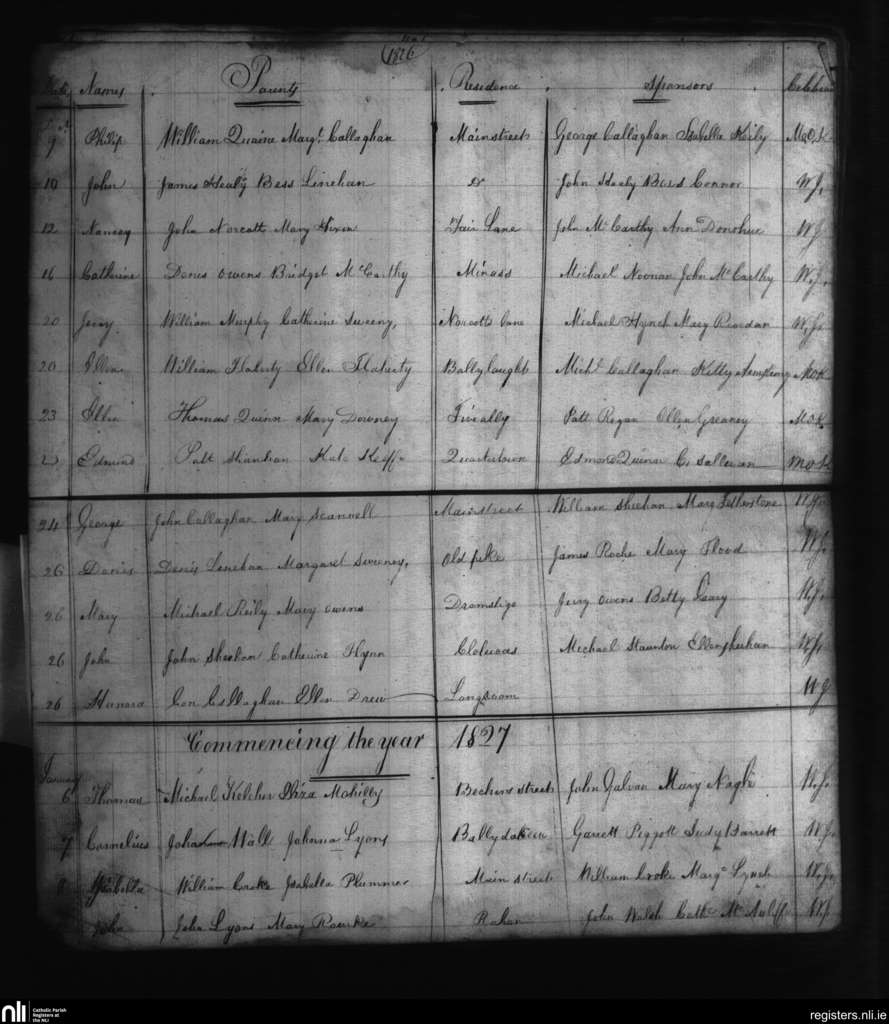 1826
Date Names Parents Residence Sponsors
9 Philip William Quaine Margt. Callaghan Mainstreet George Callaghan Isabella Kiely M.O.K
10 John James Healy Bess Linehan Do John Healy Bess Connor W.J.
12 Nancy John Norcott Mary Nixon Fair Lane John McCarthy Ann Donohue W.J
16 Catherine Denis Owens Bridget McCarthy Minass Michael Noonan John McCarthy W.J.
20 Jerry William Murphy Catherine Sweeny, Norcotts Lane Michael Hynch Mary Riordan W.J.
20 Ellen William Flaherty Ellen Flaherty Michl. Callaghan Kitty M.O.K
23 Ellen Thomas Quinn Mary Downey Patt Regan Ellen Greaney M.O.K.
Edmund Patt Shanahan Kate Keeffe Quartertown Edmond Quinn C. Sullivan M.O.K
24 George John Callaghan Mary Scannell Mainstreet William Sheehan Mary Fetherstone W.J.
26 Denis Denis Linehan Margaret Sweeney, Old pike James Roche Mary Flood W.J.
26 Mary Michael Reily Mary Owens Dromslige Jerry Owens Betty Leary W.J.
26 John John Sheehan Catherine Flynn Michael Staunton Ellen Sheehan W.J.
26 Hanora Con Callaghan Ellen Drew W.J
Commencing the year 1827
January
6 Thomas Michael Kelcher Eliza Mahilly Bechers street John Galvan Mary Nagle W.J.
7 Cornelius John Wall Johanna Lyons Garrett Piggott Judy Barrett W.J.
8 Isabella William Croke Isabella Plummer Main street William Croke Margt. Lynch W.J.
John John Lyons Mary Rourke Rahan John Walsh Cathe. McAuliffe W.J.
nli
Catholic Parish
Registers at
the NLI
registers.nli.ie